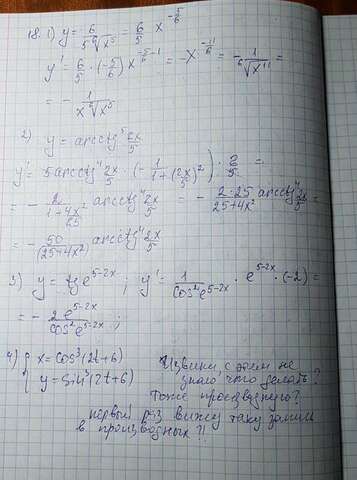 18. 1) y = 6/(5 ⁶√x⁵) = 6/5 x^(-5/6)
y' = 6/5 · (-5/6) x^(-5/6 - 1) = -x^(-11/6) = -1/(⁶√x¹¹) =
= - 1/(x ⁶√x⁵)
2) y = arcctg⁵ 2x/5
y' = 5 arcctg⁴ 2x/5 · (- 1/(1+(2x/5)²)) · 2/5 =
= - 2/(1+4x²/25) arcctg⁴ 2x/5 = - 2·25/(25+4x²) arcctg⁴ 2x/5 =
= - 50/(25+4x²) arcctg⁴ 2x/5
3) y = tg e^(5-2x) ; y' = 1/(cos² e^(5-2x)) · e^(5-2x) · (-2) =
= - 2e^(5-2x)/(cos² e^(5-2x)) ;
4) { x = cos³(2t+6)
y = sin³(2t+6)
Извини, с этим не
знаю что делать?
Тоже производную?
первый раз вижу таку запись
в производных?!